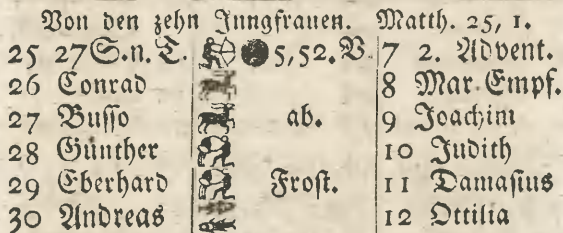 Von den zehn Jungfrauen. Matth. 25, 1.
25 27 S. n. T. 5, 52. V. 7 2. Advent.
26 Conrad 8 Mar. Empf.
27 Busso ab. 9 Joachim
28 Günther 10 Judith
29 Eberhard Frost. 11 Damasius
30 Andreas 12 Ottilia